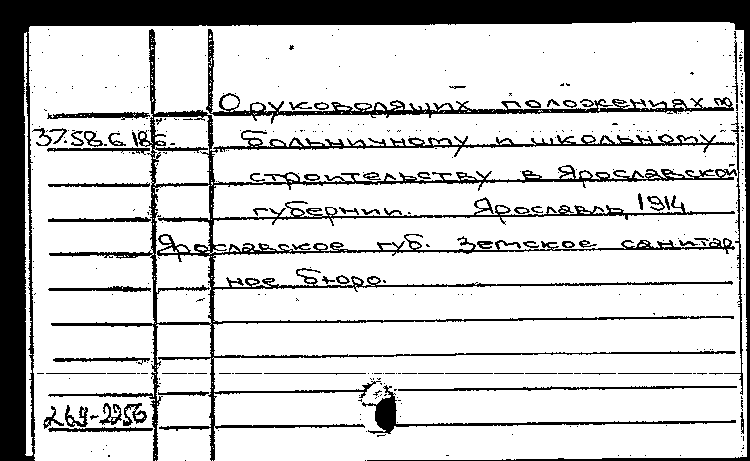 О руководящих положениях по
37.58.6.186. больничному и школьному
строительству в Ярославской
губернии. Ярославль, 1914
Ярославское губ. земское санитар-
ное бюро.
269-2256